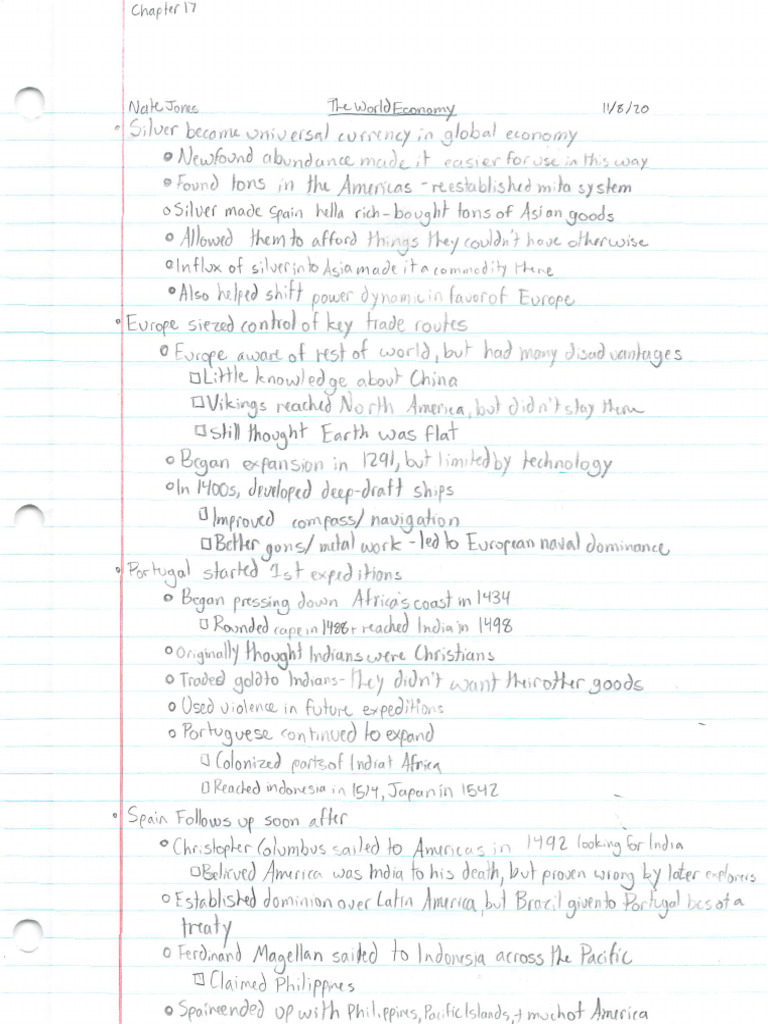 Chapter 17
Nate Jones The World Economy 11/8/20
• Silver became universal currency in global economy
o Newfound abundance made it easier for use in this way
o Found tons in the Americas - reestablished mita system
o Silver made Spain hella rich - bought tons of Asian goods
o Allowed them to afford things they couldn't have otherwise
o Influx of silver into Asia made it a commodity there
o Also helped shift power dynamic in favor of Europe
• Europe siezed control of key trade routes
o Europe aware of rest of world, but had many disadvantages
□ Little knowledge about China
□ Vikings reached North America, but didn't stay there
□ Still thought Earth was flat
o Began expansion in 1291, but limited by technology
o In 1400s, developed deep-draft ships
□ Improved compass/navigation
□ Better guns/metal work - led to European naval dominance
• Portugal started 1st expeditions
o Began pressing down Africa's coast in 1434
□ Rounded cape in 1488 + reached India in 1498
o Originally thought Indians were Christians
o Traded gold to Indians - they didn't want their other goods
o Used violence in future expeditions
o Portuguese continued to expand
□ Colonized parts of India + Africa
□ Reached indonesia in 1514, Japan in 1542
• Spain Follows up soon after
o Christopher Columbus sailed to Americas in 1492 looking for India
□ Believed America was India to his death, but proven wrong by later explorers
o Established dominion over Latin America, but Brazil given to Portugal bcs of a
treaty
o Ferdinand Magellan sailed to Indonesia across the Pacific
□ Claimed Philippines
o Spain ended up with Philippines, Pacific Islands, + much of America